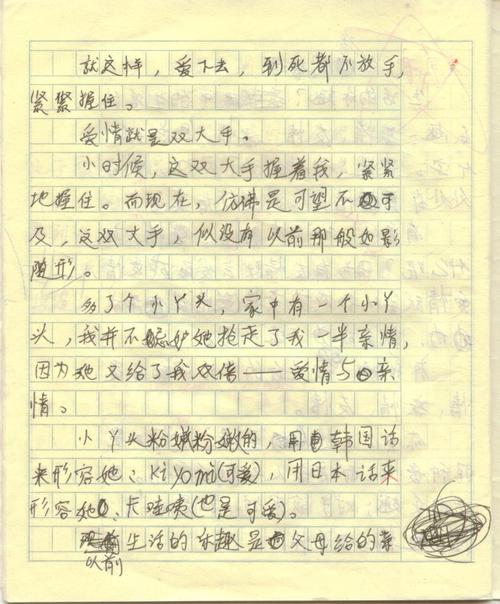 就这样，爱下去，到死都不放手，
紧紧握住。
爱情就是双大手。
小时候，这双大手握着我，紧紧
地握住。而现在，仿佛是可望不可
及，这双大手，似没有以前那般如影
随形。
多了个小丫头，家中有一个小丫
头，我并不嫉妒她抢走了我一半亲情，
因为她又给了我双倍——爱情与亲
情。
小丫头粉嫩粉嫩的，用韩国话
来形容她、kiyomi(可爱)，用日本话来
形容她、卡哇咦(也是可爱)。
以前生活的乐趣是父母给的亲